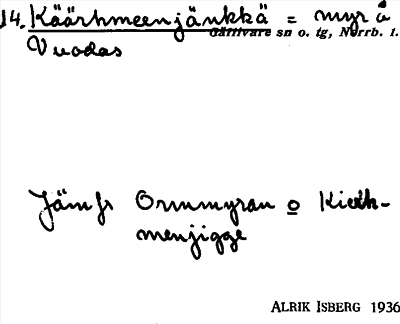 14. Käärhmeenjänkkä = myr å
Gällivare sn o. tg, Norrb. l.
Vuodas
Jämfs Ormmyran o Kieth-
menjigge
ALRIK ISBERG 1936